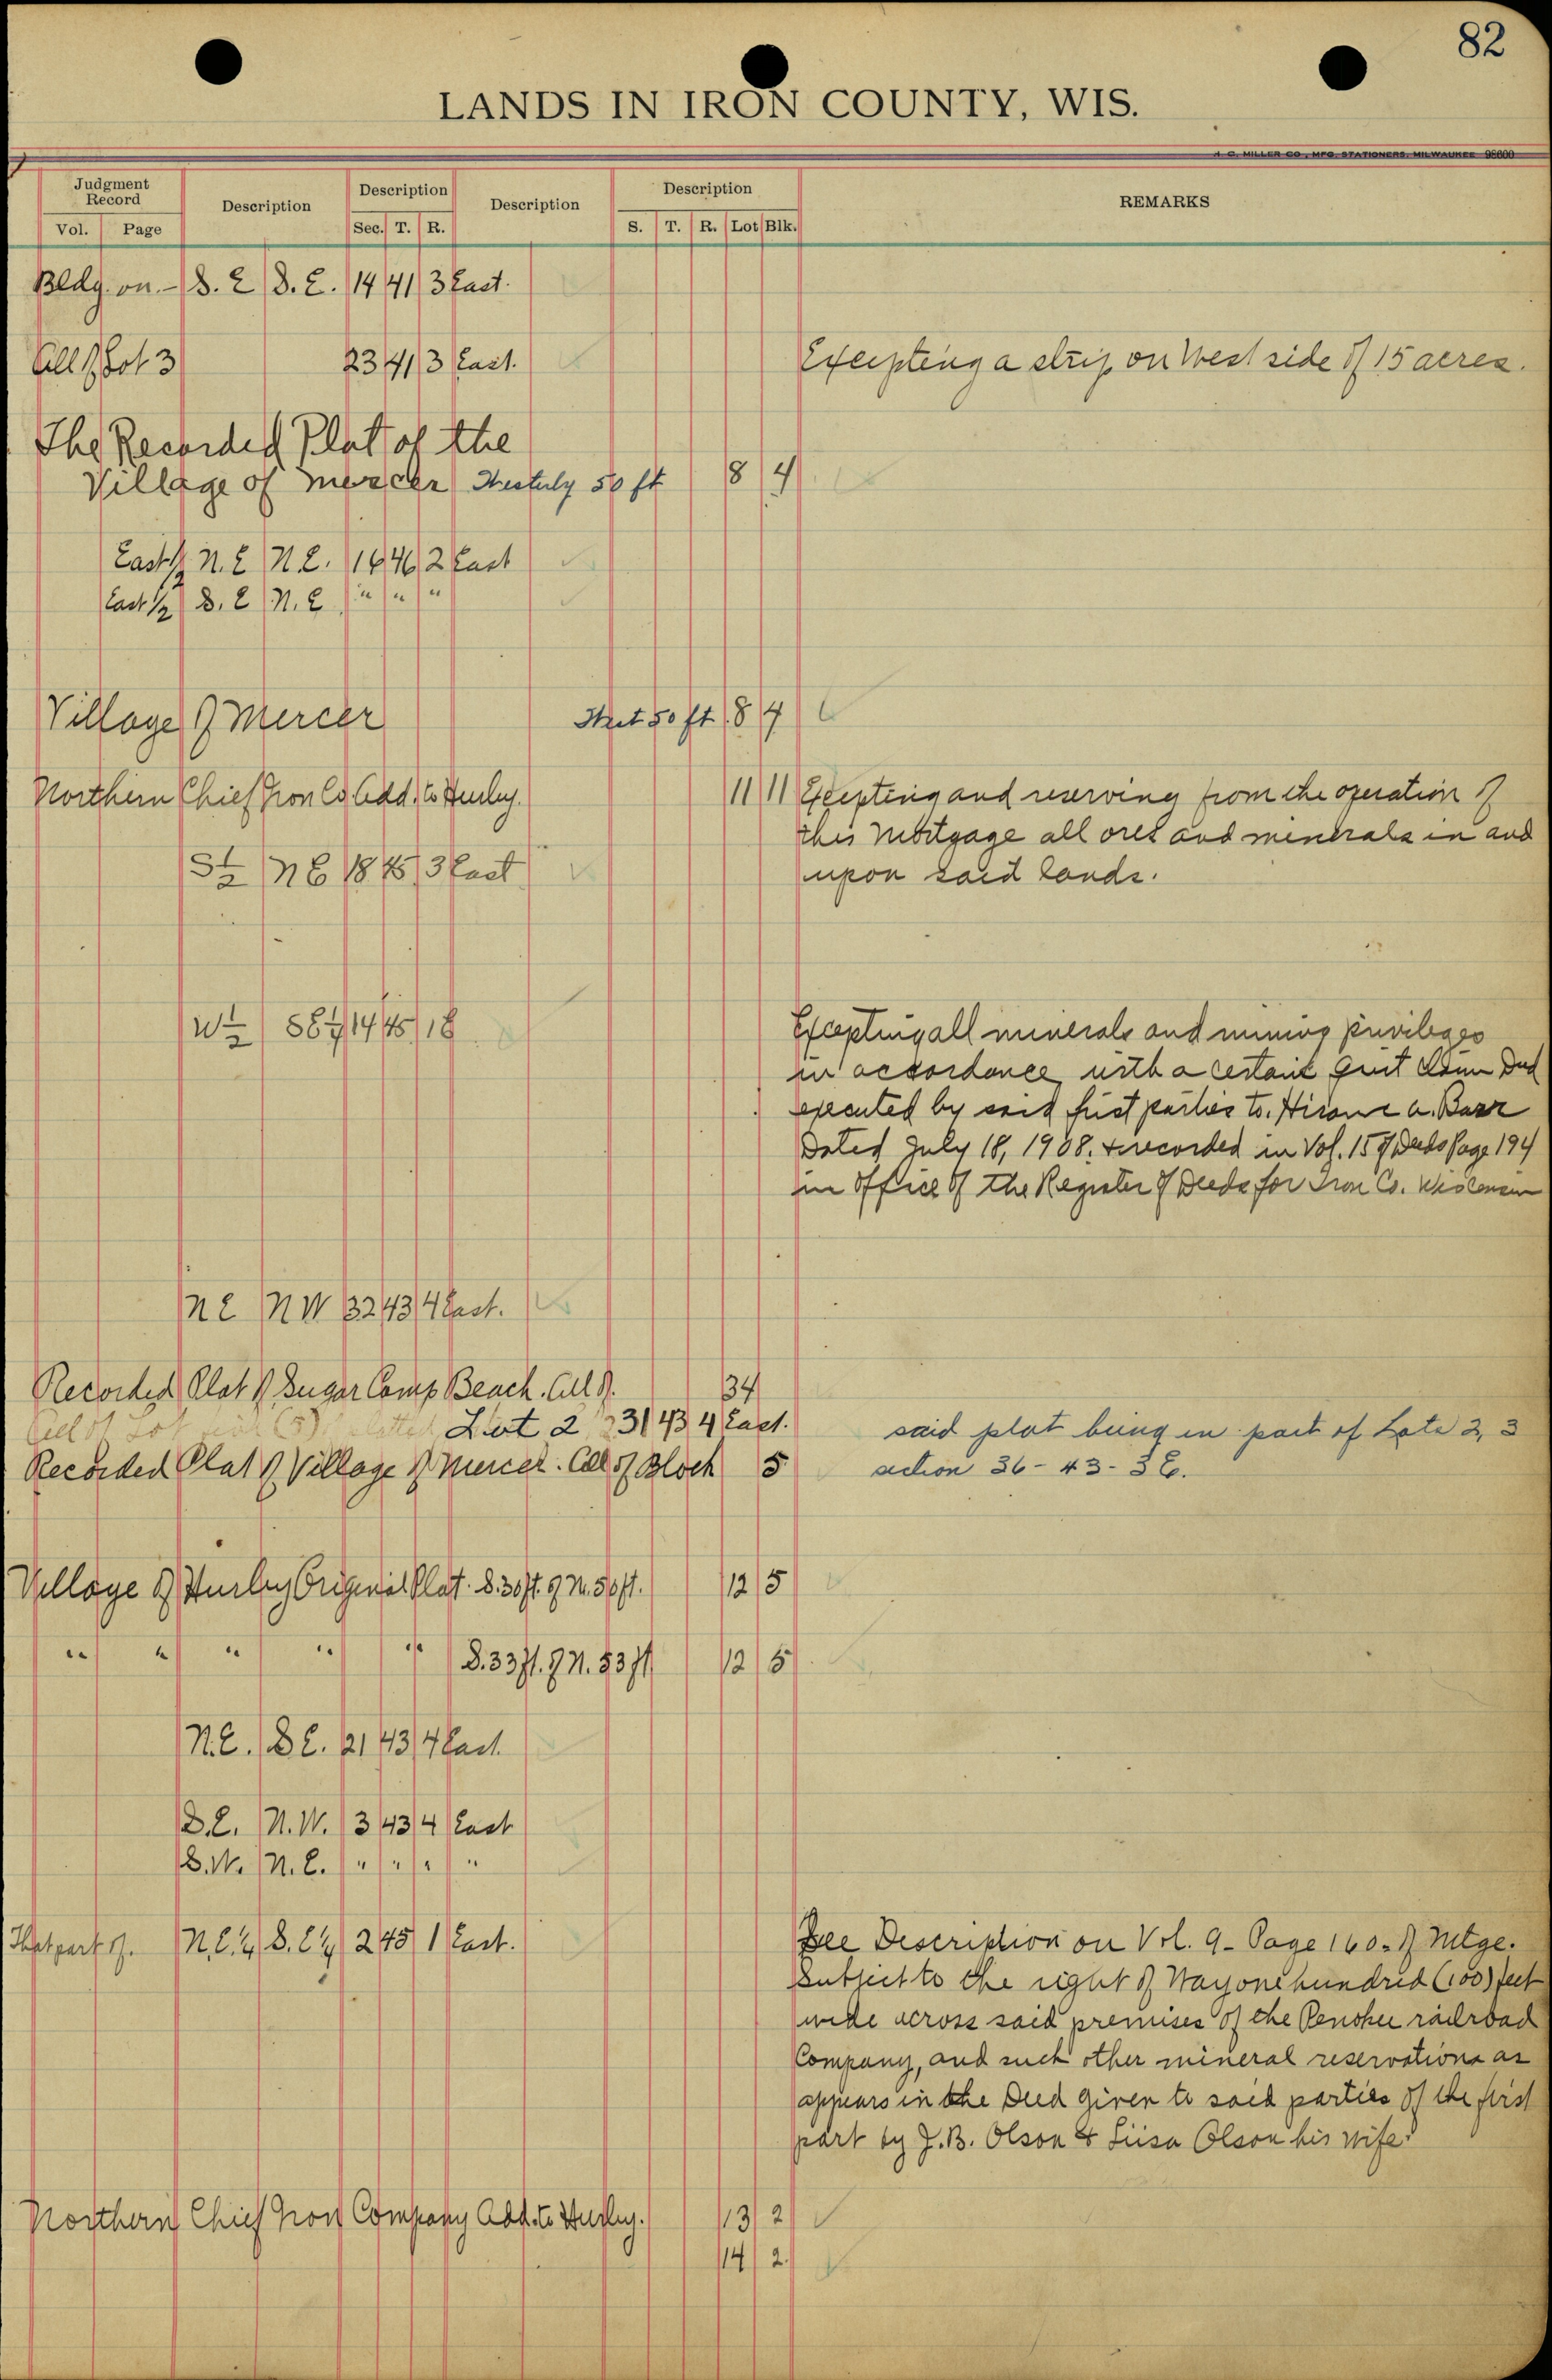 82
LANDS IN IRON COUNTY, WIS.
H. C. MILLER CO., MFG. STATIONERS, MILWAUKEE 98600
Judgment Record Description Description Description Description REMARKS
Vol. Page Sec. T. R. S. T. R. Lot Blk.
Bldg. on - S. E S. E. 14 41 3 East.
All of Lot 3 23 41 3 East. Excepting a strip on West side of 15 acres.
The Recorded Plat of the
Village of Mercer Westerly 50 ft 8 4
East ½ N. E N. E. 16 46 2 East
East ½ S. E N. E " " "
Village of Mercer West 50 ft 8 4
Northern Chief Iron Co. Add. to Hurley. 11 11 Excepting and reserving from the operation of
this Mortgage all ores and minerals in and
S ½ N E 18 45 3 East upon said lands.
W ½ SE ¼ 14 45 1E Excepting all minerals and mining privileges
in accordance with a certain Quit Claim Deed
executed by said first parties to. Hirame A. Barr
Dated July 18, 1908. & recorded in Vol. 15 of Deeds Page 194
in Office of the Register of Deeds for Iron Co. Wisconsin
N E N W 32 43 4 East.
Recorded Plat of Sugar Camp Beach. All of. 34
All of Lot (5) Lot 2 31 43 4 East. said plat being in part of Lots 2, 3
Recorded Plat of Village of Mercer. All of Block 5 section 36 - 43 - 3 E.
Village of Hurley Original Plat. S. 30 ft. of N. 50 ft. 12 5
" " " " " S. 33 ft. of N. 83 ft 12 5
N. E. S E. 21 43 4 East.
S. E. N. W. 3 43 4 East
S. W. N. E. " " " "
That part of. N. E. ¼ S. E ¼ 2 45 1 East. See Description on Vol. 9 - Page 160 - of Mtge.
Subject to the right of Way one hundred (100) feet
wide across said premises of the Penokee railroad
Company, and such other mineral reservations as
appears in the Deed given to said parties of the first
part by J. B. Olson & Liisa Olson his wife.
Northern Chief Iron Company Add. to Hurley. 13 2
14 2.